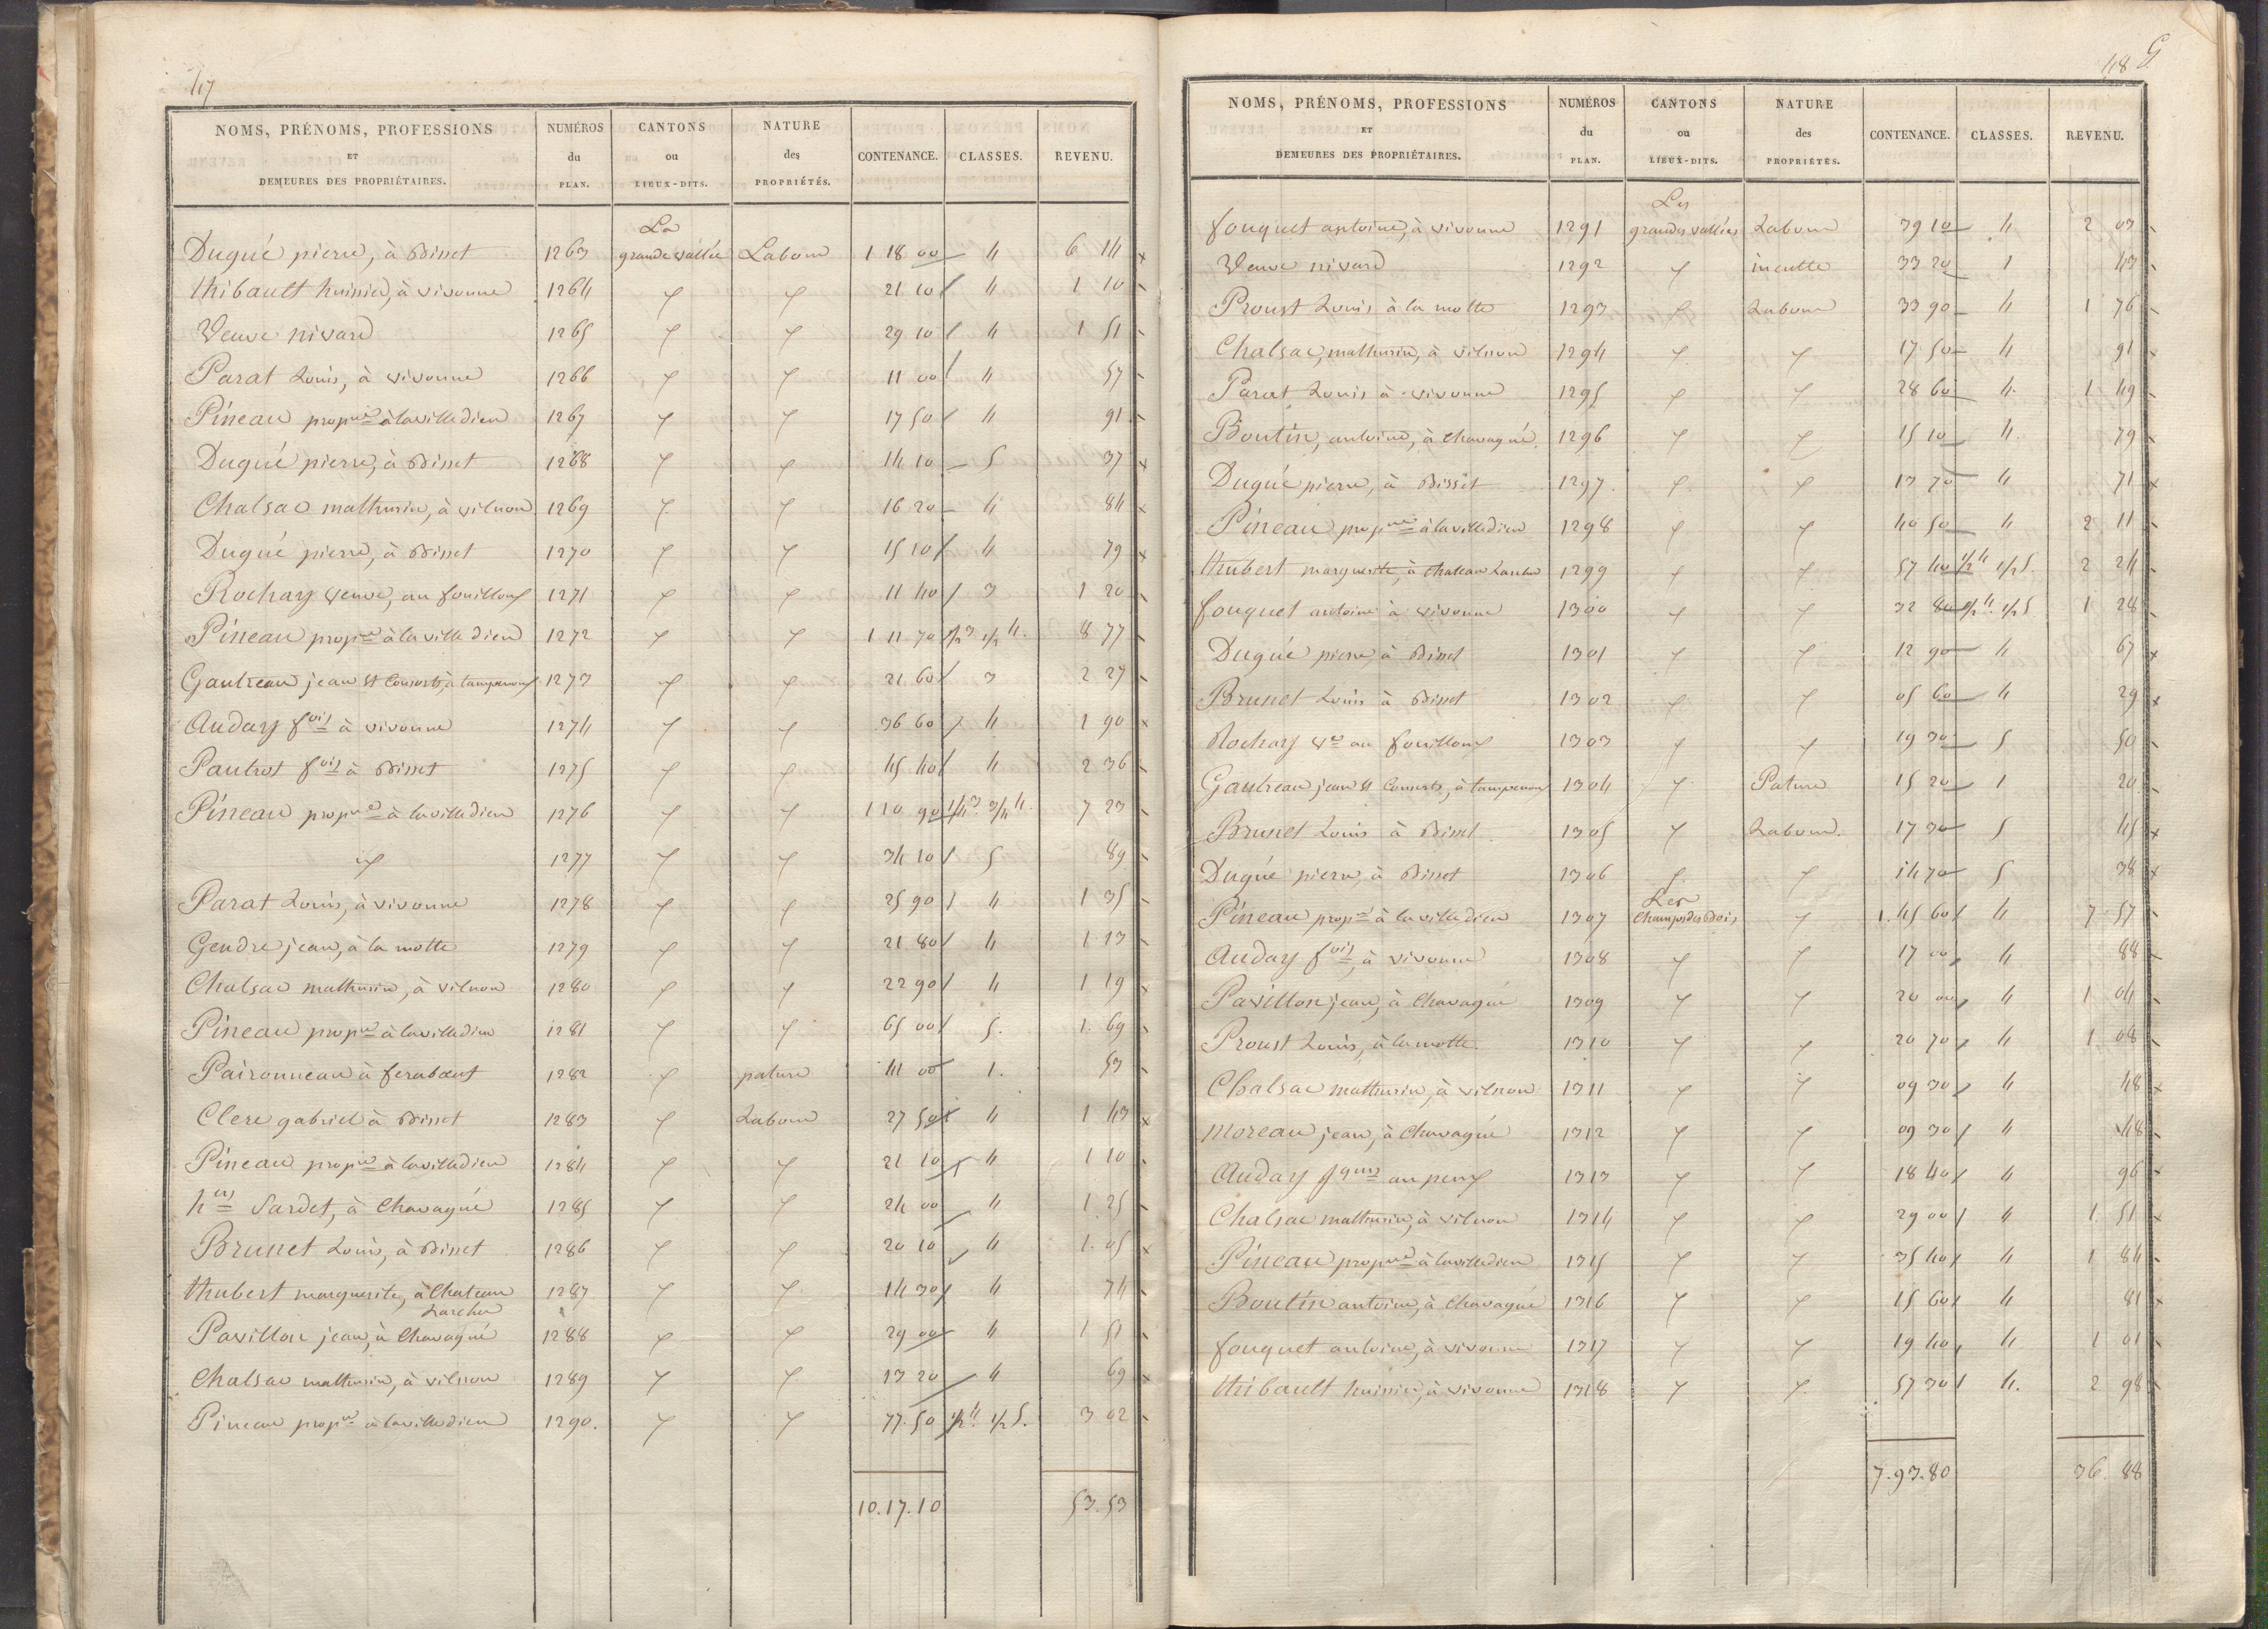 47
NOMS, PRÉNOMS, PROFESSIONS ET DEMEURES DES PROPRIÉTAIRES. NUMÉROS du PLAN. CANTONS ou LIEUX-DITS. NATURE des PROPRIÉTÉS. CONTENANCE. CLASSES. REVENU.
La
Dugué pierre, à Bisset 1263 grande vallée Labour 1 18 00 4 6 14
thibault huissier, à vivonne 1264 21 10 4 1 10
Veuve nivard 1265 29 10 4 1 51
Parat Louis, à vivonne 1266 11 00 4 57
Pineau propre à lavilledieu 1267 17 50 4 91
Dugué pierre, à Bisset 1268 14 10 5 37
Chalsac mathurin, à vilnon 1269 16 20 4 84
Dugué pierre, à Bisset 1270 15 10 4 79
Rochay veuve, au fouilloux 1271 11 40 3 1 20
Pineau propre à la ville dieu 1272 1 11 70 1/2 3 1/2 4. 8 77
Gautreau jean et Consorts, à tampenoux 1273 21 60 3 2 27
Auday fois à vivonne 1274 36 60 4 1 90
Pautrot fois à Bisset 1275 45 40 4 2 36
Pineau propre à lavilledieu 1276 1 10 90 1/4 3 3/4 4. 7 23
id 1277 34 10 5 89
Parat Louis, à vivonne 1278 25 90 4 1 35
Gendre jean, à la motte 1279 21 80 4 1 13
Chalsac mathurin, à vilnon 1280 22 90 4 1 19
Pineau propre à lavilledieu 1281 65 00 5. 1. 69
Paironneau à ferabœuf 1282 pature 41 00 1. 53
Clere gabriel à Bisset 1283 Labour 27 50 4 1 43
Pineau propre à lavilledieu 1284 21 10 4 1 10
hers Sardet, à Chavagné 1285 24 00 4 1 25
Brunet Louis, à Bisset 1286 20 10 4 1. 05
thubert marguerite, à Chateau 1287 14 30 4 74
Larcher
Pavillon jean, à Chavagné 1288 29 00 4 1 51
Chalsac mathurin, à vilnon 1289 13 20 4 69
Pineau propre à lavilledieu 1290. 77. 50 1/2 4. 1/2 5. 3 02
10.17.10 53.53
48 G
NOMS, PRÉNOMS, PROFESSIONS ET DEMEURES DES PROPRIÉTAIRES. NUMÉROS du PLAN. CANTONS ou LIEUX-DITS. NATURE des PROPRIÉTÉS. CONTENANCE. CLASSES. REVENU.
Les
fouquet antoine, à vivonne 1291 grandes vallées Labour 39 10 4 2 03
Veuve nivard 1292 inculte 33 20 1 43
Proust Louis à la motte 1293 Labour 33 90 4 1 76
Chalsac, mathurin, à vilnon 1294 17 50 4 91
Parat Louis à vivonne 1295 28 60 4. 1 49
Boutin, antoine, à Chavagné. 1296 15 10 4. 79
Dugué pierre, à Bisset 1297. 13 70 4 71
Pineau propre à lavilledieu 1298 40 50 4 2 11
thubert marguerite, à Chateau Larcher 1299 57 40 1/2 4 1/2 5. 2 24
fouquet antoine à vivonne 1300 32 80 1/2 4. 1/2 5 1 28
Dugué pierre, à Bisset 1301 12 90 4 67
Brunet Louis à Bisset 1302 05 60 4 29
Rochay ve au fouilloux 1303 19 30 5 50
Gautreau jean et Consorts, à tampenoux 1304 Pature 15 20 1 20
Brunet Louis à Bisset 1305 Labour. 17 30 5 45
Dugué pierre, à Bisset 1306 14 70 5 38
Les
Pineau propre à la villedieu 1307 Champs des Bois 1. 45 60 4 7. 57
Auday fois, à vivonne 1308 17 00 4 88
Pavillon jean, à Chavagné 1309 20 00 4 1 04
Proust Louis, à la motte. 1310 20 70 4 1 08
Chalsac mathurin, à vilnon 1311 09 30 4 48
Moreau jean, à Chavagné 1312 09 30 4 48
Auday jques au peux 1313 18 40 4 96
Chalsac mathurin, à vilnon 1314 29 00 4 1. 51
Pineau propre à lavilledieu 1315 35 40 4 1 84
Boutin antoine, à Chavagné 1316 15 60 4 81
fouquet antoine, à vivonne 1317 19 40 4 1 01
thibault huissier, à vivonne 1318 57 30 4. 2 98
7.93.80 36. 88